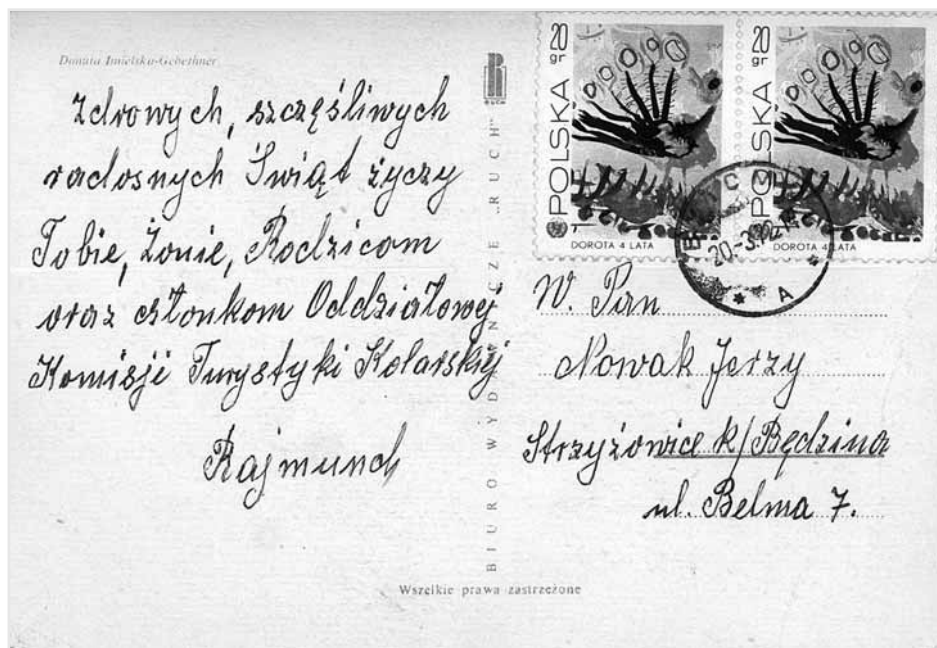 Danuta Imielska-Gebethner
Zdrowych, szczęśliwych
radosnych Świąt życzy
Tobie, Żonie, Rodzicom
oraz członkom Oddziałowej
Komisji Turystyki Kolarskiej
Rajmund
RUCH
BIURO WYDAWNICZE „RUCH”
Wszelkie prawa zastrzeżone
20 gr
POLSKA
DOROTA 4 LATA
20 gr
POLSKA
DOROTA 4 LATA
A
W. Pan
Nowak Jerzy
Strzyżowice k/Będzina
ul. Belma 7.